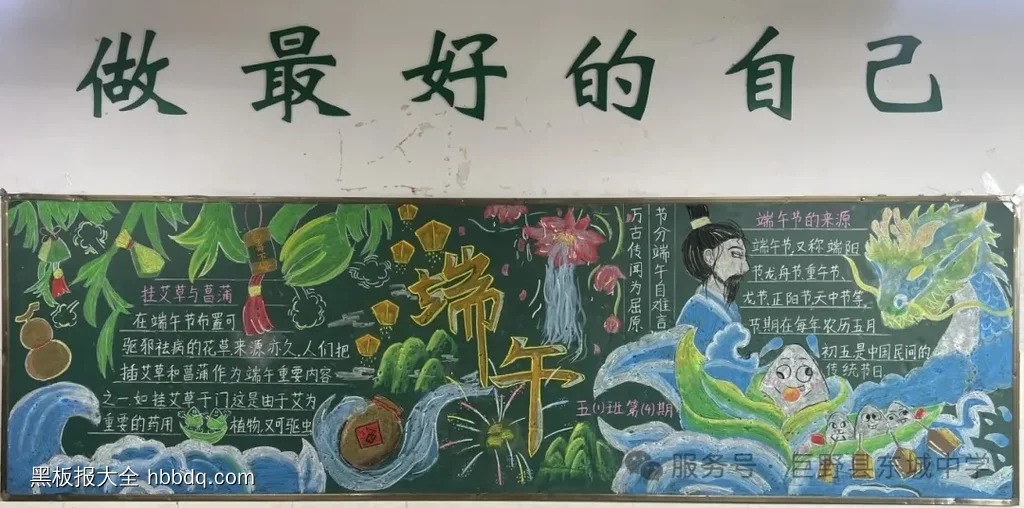 做最好的自己
挂艾草与菖蒲
在端午节布置可
驱邪祛病的花草来源亦久,人们把
插艾草和菖蒲作为端午重要内容
之一.如挂艾草于门这是由于艾为
重要的药用
植物,又可驱虫
端午
五(1)班第(4)期
节分端午自难言
万古传闻为屈原
端午节的来源
端午节,又称端阳
节龙舟节重午节、
尤节.正阳节天中节等.
节期在每年农历五月
初五是中国民间的
传统节日
黑板报大全 hbbdq.com
服务号·巨野县东城中学